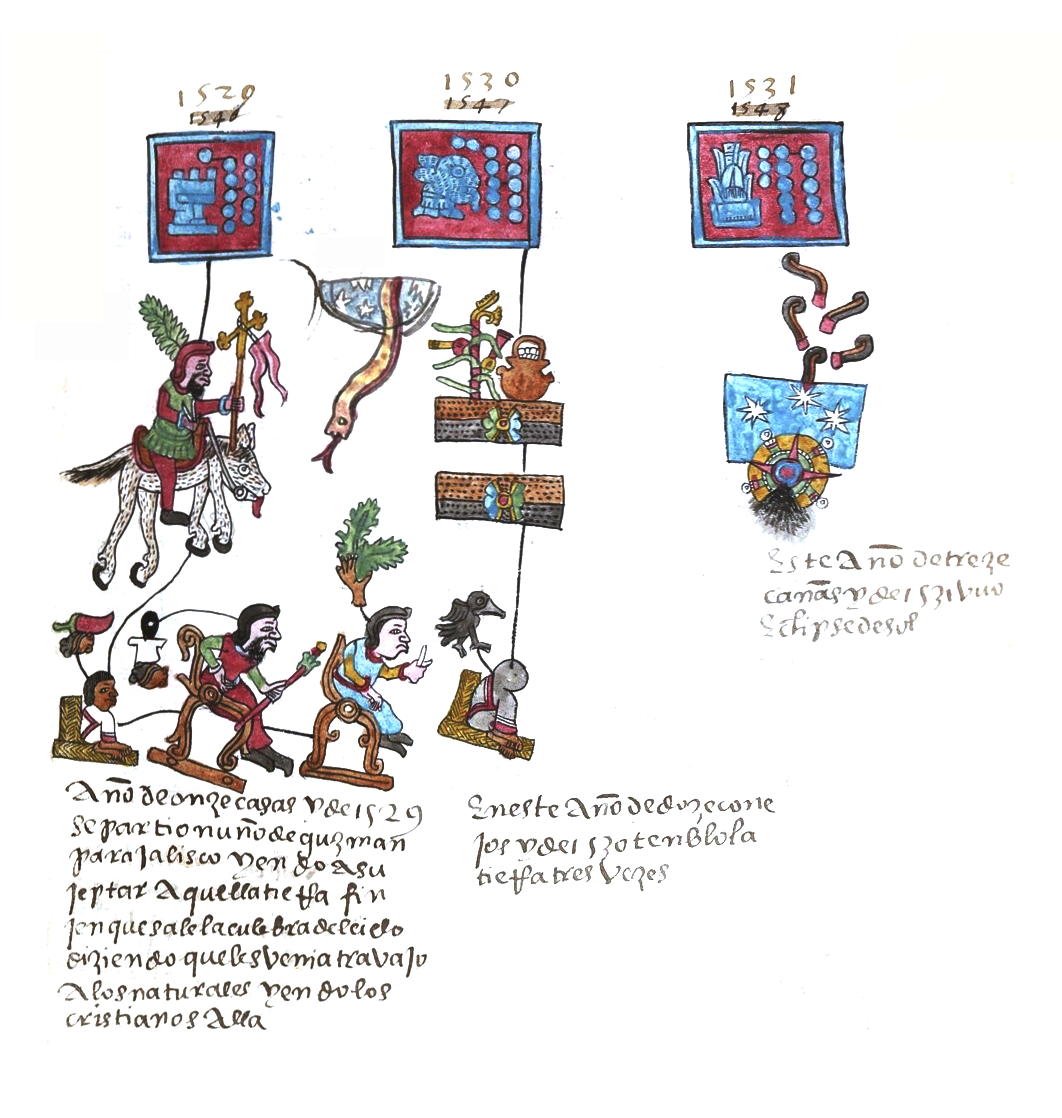 1529
1546
1530
1547
1531
1548
Año de onze casas y de 1529
se partio nuño de guzman
para Jalisco yendo a su
jeptar aquella tierra fin
jen que sale la culebra del cielo
diziendo que les venia travajo
a los naturales yendo los
cristianos alla
En este Año de doze cone
jos y de 1530 tenblo la
tierra tres vezes
Este Año de treze
cañas y de 1531 vuo
Eclipse de sol